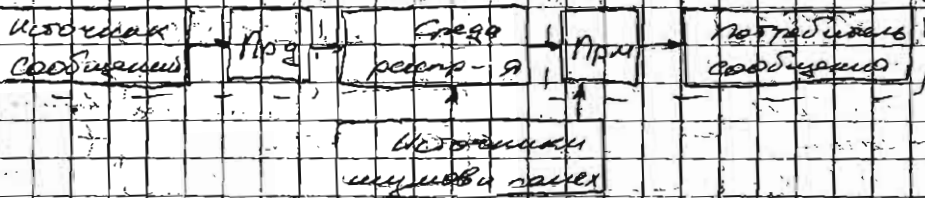 Источник
сообщений
Прд
Среда
распр-я
Прм
Потребитель
сообщения
Источники
шумов и помех